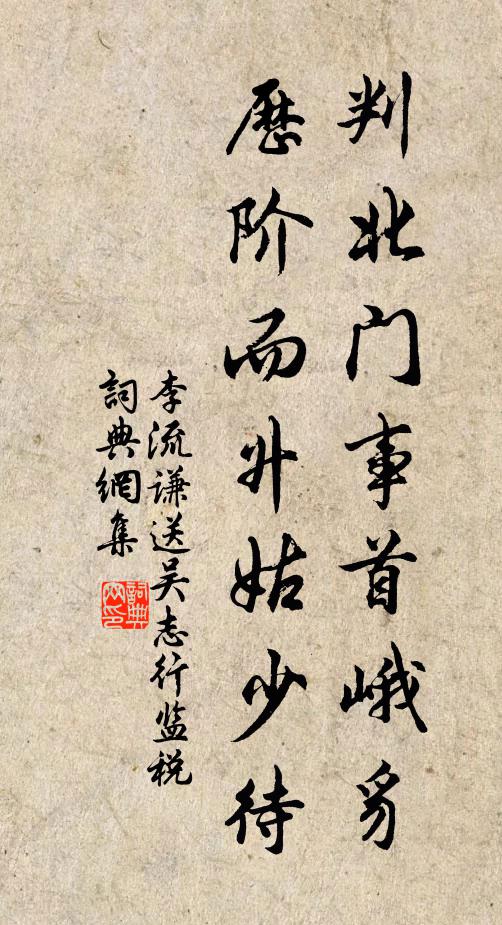 判北门事首峨豸
歷阶而升姑少待
李流谦送吴志行监税
詞典網集
詞典网印